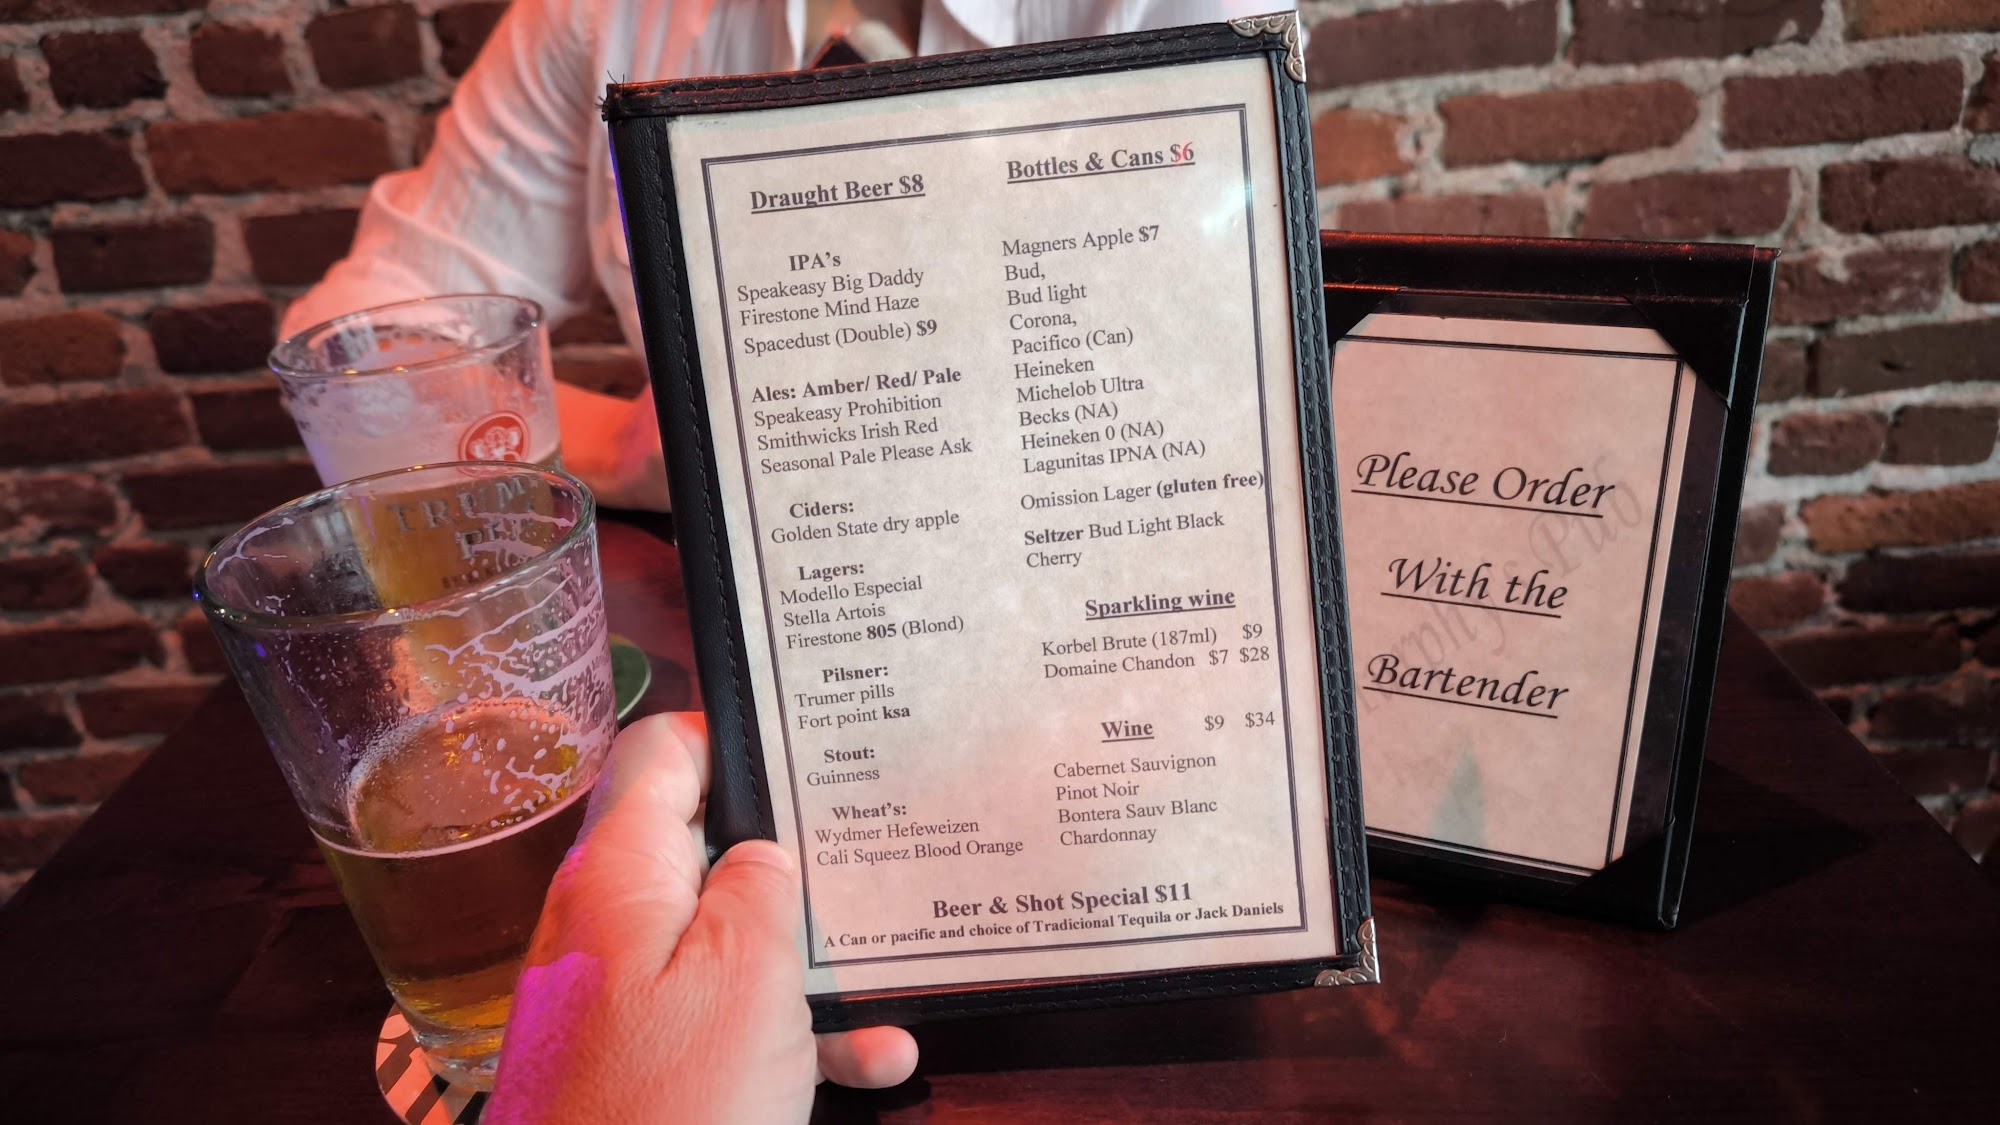 Draught Beer $8
IPA's
Speakeasy Big Daddy
Firestone Mind Haze
Spacedust (Double) $9
Ales: Amber/ Red/ Pale
Speakeasy Prohibition
Smithwicks Irish Red
Seasonal Pale Please Ask
Ciders:
Golden State dry apple
Lagers:
Modello Especial
Stella Artois
Firestone 805 (Blond)
Pilsner:
Trumer pills
Fort point ksa
Stout:
Guinness
Wheat's:
Wydmer Hefeweizen
Cali Squeez Blood Orange
Bottles & Cans $6
Magners Apple $7
Bud,
Bud light
Corona,
Pacifico (Can)
Heineken
Michelob Ultra
Becks (NA)
Heineken 0 (NA)
Lagunitas IPNA (NA)
Omission Lager (gluten free)
Seltzer Bud Light Black
Cherry
Sparkling wine
Korbel Brute (187ml) $9
Domaine Chandon $7 $28
Wine $9 $34
Cabernet Sauvignon
Pinot Noir
Bontera Sauv Blanc
Chardonnay
Beer & Shot Special $11
A Can or pacific and choice of Tradicional Tequila or Jack Daniels
Please Order
With the
Bartender